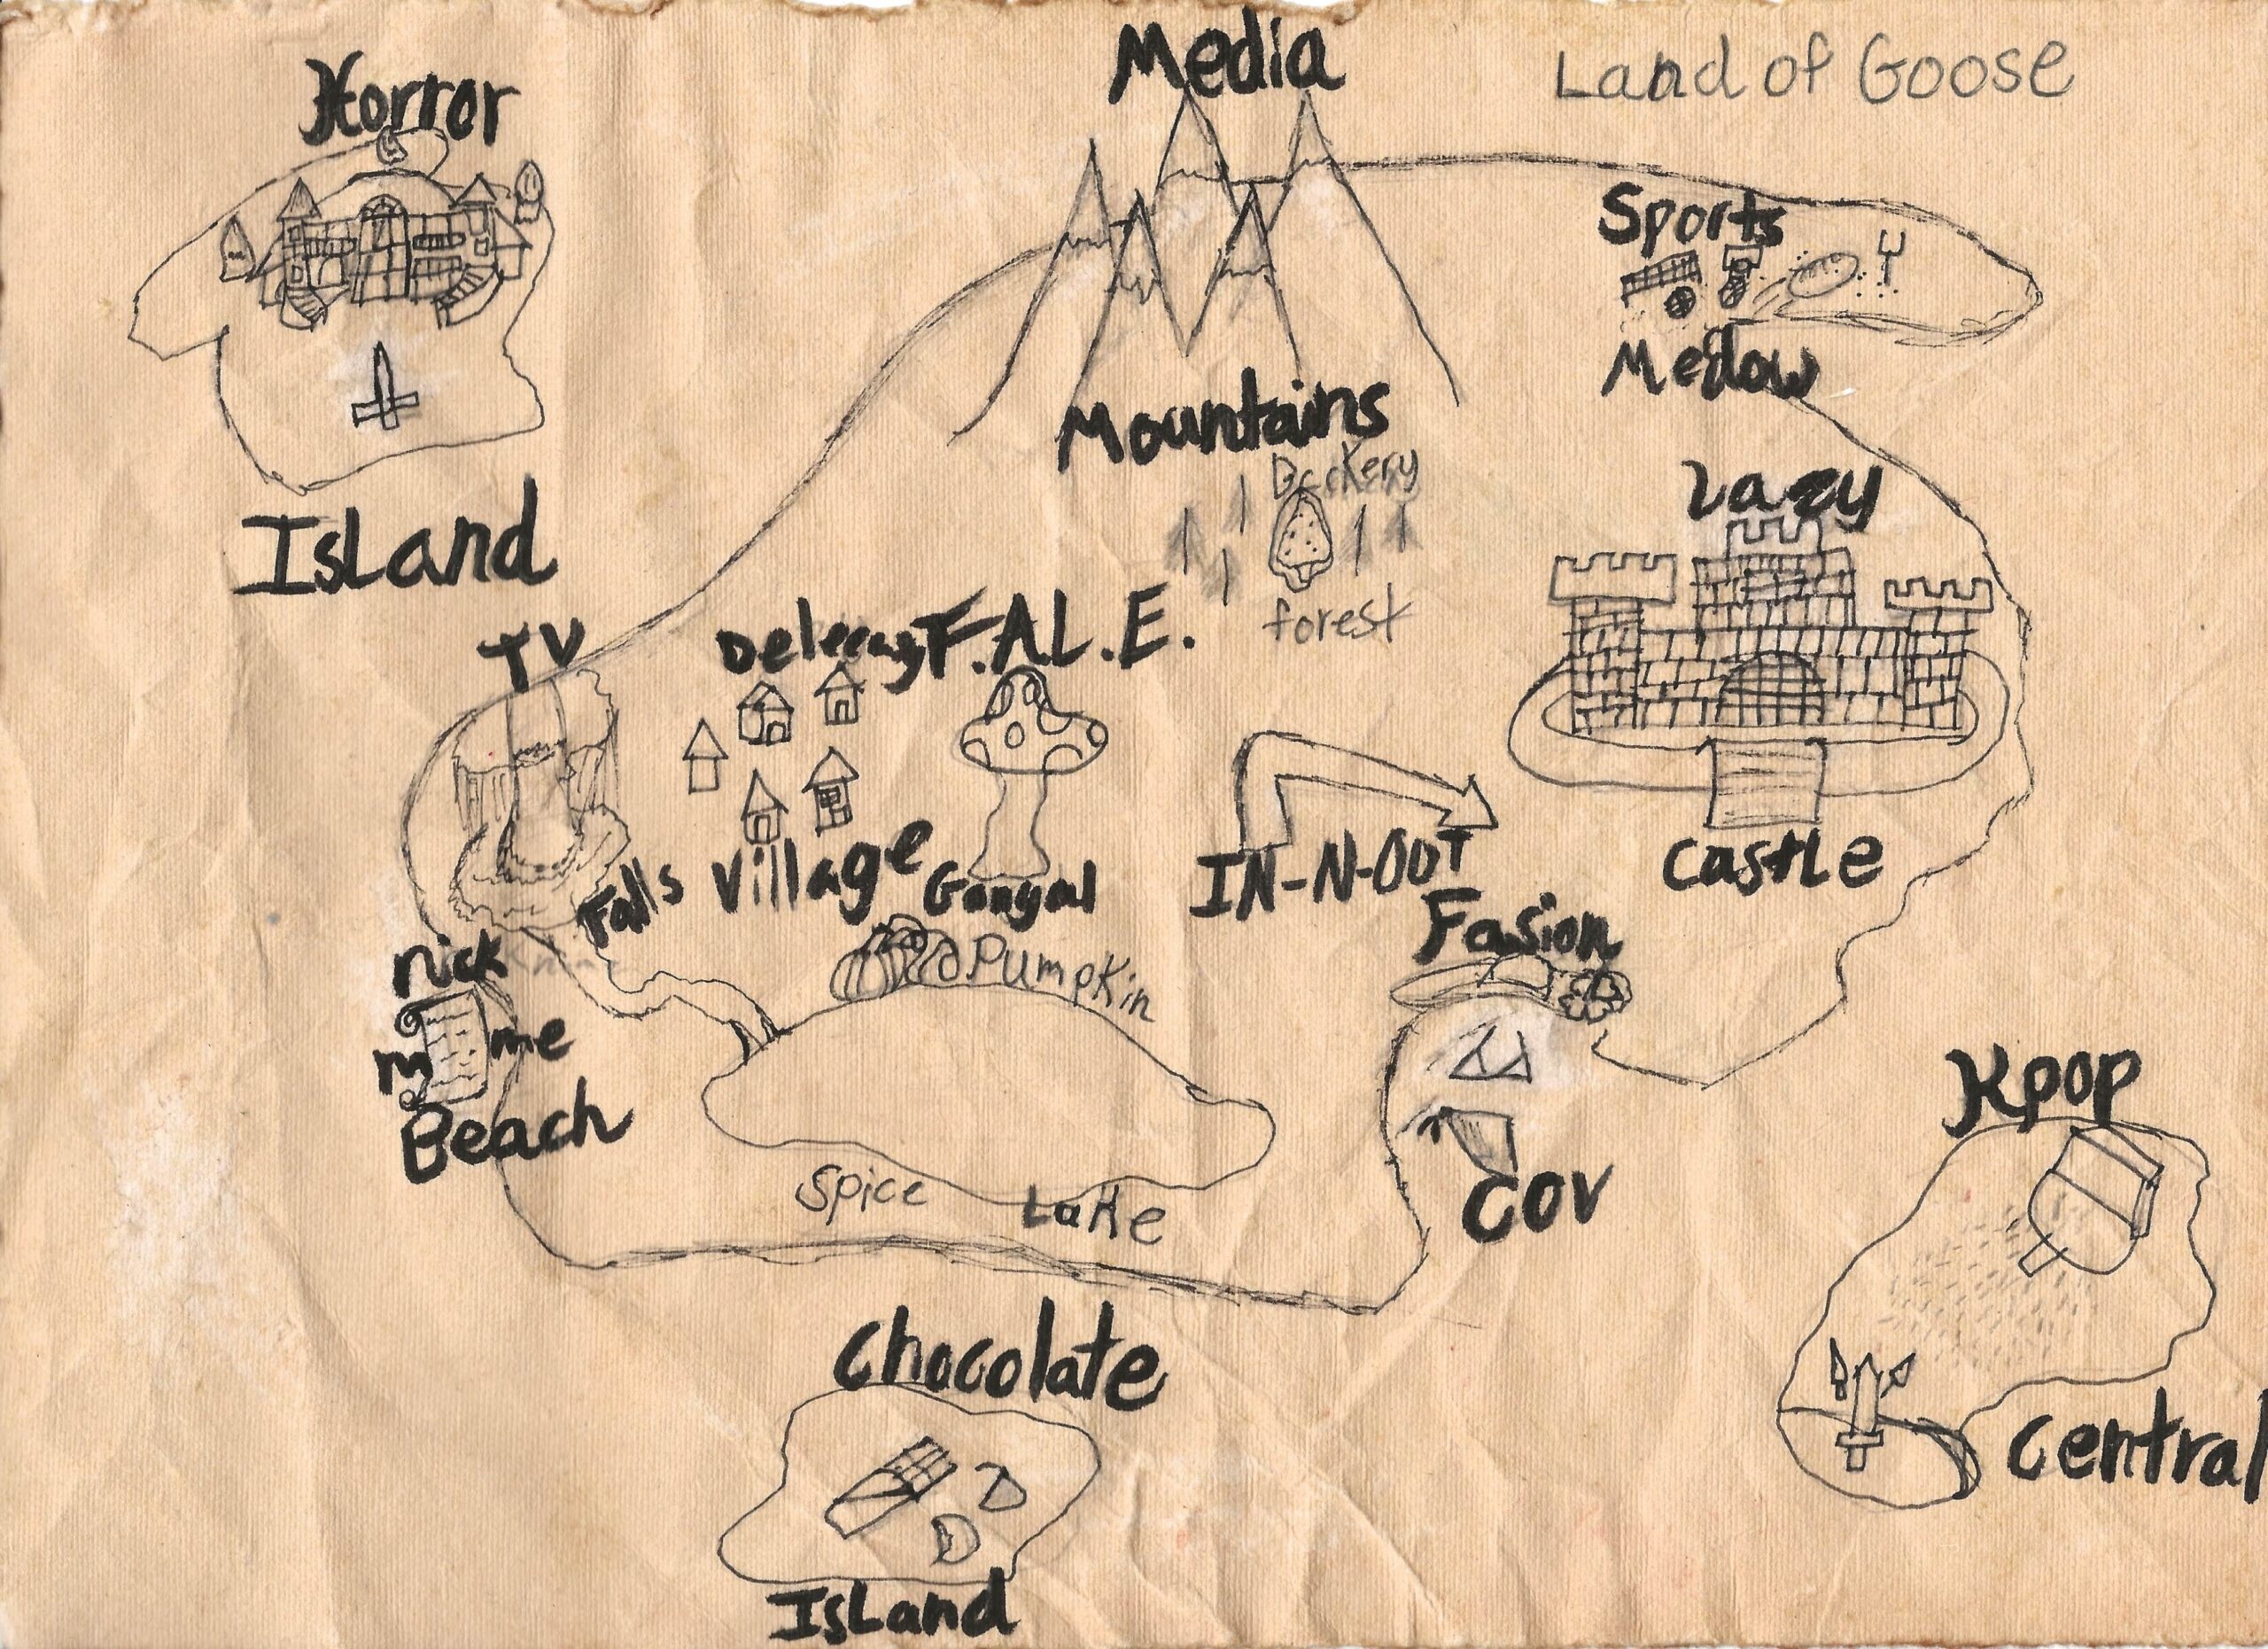 Media
Land of Goose
Horror
Island
Sports
Medow
Mountains
forest
Lazy
Castle
TV
Falls
Village
F.A.L.E.
IN-N-OUT
Fasion
COV
nick
me
Beach
Pumpkin
Spice
Latte
Kpop
Central
Chocolate
Island